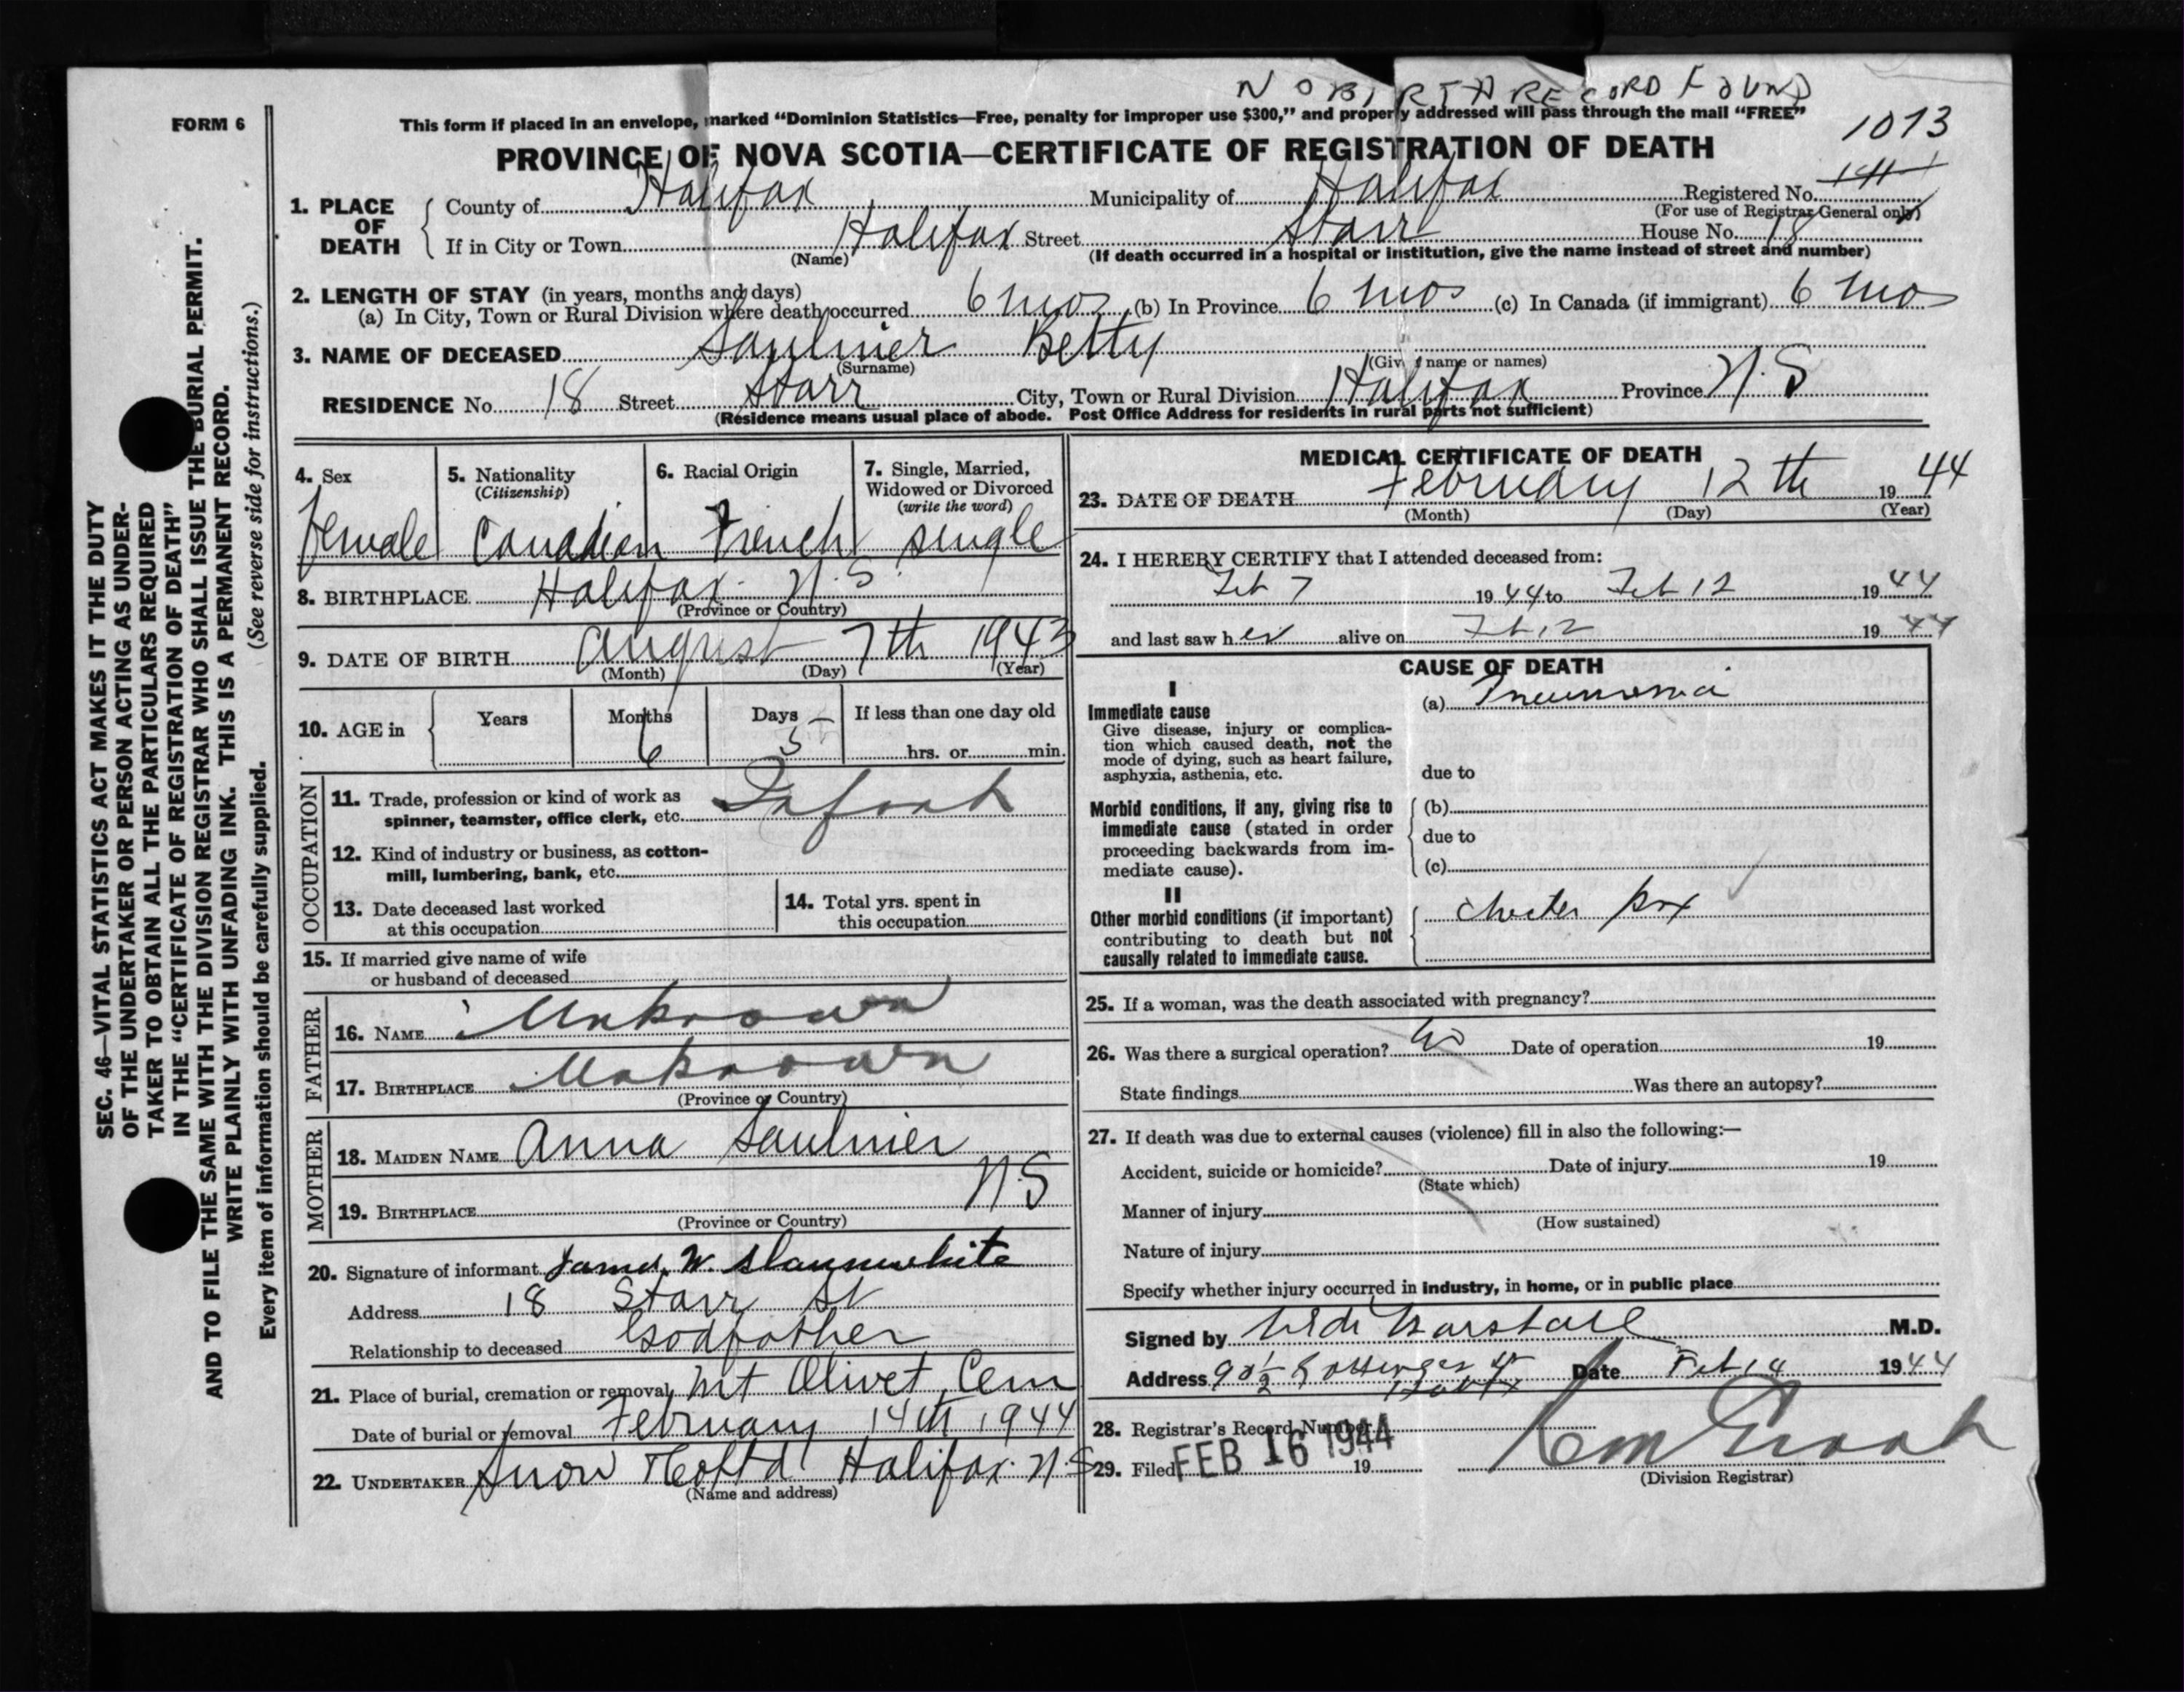 NO BIRTH RECORD FOUND
FORM 6
This form if placed in an envelope, marked “Dominion Statistics—Free, penalty for improper use $300,” and properly addressed will pass through the mail “FREE”
1013
PROVINCE OF NOVA SCOTIA—CERTIFICATE OF REGISTRATION OF DEATH
1. PLACE OF DEATH
County of Halifax Municipality of Halifax Registered No.
(For use of Registrar General only)
If in City or Town Halifax Street Starr House No. 18
(Name) (If death occurred in a hospital or institution, give the name instead of street and number)
2. LENGTH OF STAY (in years, months and days)
(a) In City, Town or Rural Division where death occurred 6 mos (b) In Province 6 mos (c) In Canada (if immigrant) 6 mo
3. NAME OF DECEASED Saulnier Betty
(Surname) (Given name or names)
RESIDENCE No. 18 Street Starr City, Town or Rural Division Halifax Province N.S
(Residence means usual place of abode. Post Office Address for residents in rural parts not sufficient)
4. Sex
female
5. Nationality
(Citizenship)
Canadian
6. Racial Origin
French
7. Single, Married,
Widowed or Divorced
(write the word)
single
8. BIRTHPLACE Halifax. N.S.
(Province or Country)
9. DATE OF BIRTH August 7th 1943
(Month) (Day) (Year)
10. AGE in
Years Months Days If less than one day old
6 5 hrs. or min.
OCCUPATION
11. Trade, profession or kind of work as
spinner, teamster, office clerk, etc. Infant
12. Kind of industry or business, as cotton-
mill, lumbering, bank, etc.
13. Date deceased last worked
at this occupation
14. Total yrs. spent in
this occupation
15. If married give name of wife
or husband of deceased
FATHER
16. NAME Unknown
17. BIRTHPLACE Unknown
(Province or Country)
MOTHER
18. MAIDEN NAME Anna Saulnier
19. BIRTHPLACE N.S
(Province or Country)
20. Signature of informant James W. Slaunwhite
Address 18 Starr St
Relationship to deceased Godfather
21. Place of burial, cremation or removal Mt Olivet Cem
Date of burial or removal February 14th 1944
22. UNDERTAKER Snow & Co Ltd Halifax. N.S
(Name and address)
MEDICAL CERTIFICATE OF DEATH
23. DATE OF DEATH February 12th 1944
(Month) (Day) (Year)
24. I HEREBY CERTIFY that I attended deceased from:
Feb 7 1944 to Feb 12 1944
and last saw her alive on Feb 12 1944
CAUSE OF DEATH
I
Immediate cause
Give disease, injury or complica-
tion which caused death, not the
mode of dying, such as heart failure,
asphyxia, asthenia, etc.
(a) Pneumonia
due to
Morbid conditions, if any, giving rise to
immediate cause (stated in order
proceeding backwards from im-
mediate cause).
(b)
due to
(c)
II
Other morbid conditions (if important)
contributing to death but not
causally related to immediate cause.
Chicken pox
25. If a woman, was the death associated with pregnancy?
26. Was there a surgical operation? no Date of operation 19
State findings Was there an autopsy?
27. If death was due to external causes (violence) fill in also the following:—
Accident, suicide or homicide? Date of injury 19
(State which)
Manner of injury
(How sustained)
Nature of injury
Specify whether injury occurred in industry, in home, or in public place
Signed by Marshall M.D.
Address 90½ Date Feb 14 1944
28. Registrar's Record Number
29. Filed FEB 16 1944 19
(Division Registrar)
SEC. 46—VITAL STATISTICS ACT MAKES IT THE DUTY
OF THE UNDERTAKER OR PERSON ACTING AS UNDER-
TAKER TO OBTAIN ALL THE PARTICULARS REQUIRED
IN THE “CERTIFICATE OF REGISTRATION OF DEATH”
AND TO FILE THE SAME WITH THE DIVISION REGISTRAR WHO SHALL ISSUE THE BURIAL PERMIT.
WRITE PLAINLY WITH UNFADING INK. THIS IS A PERMANENT RECORD.
Every item of information should be carefully supplied. (See reverse side for instructions.)